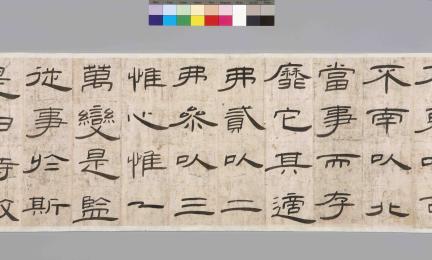 不南以北
當事而存
靡它其適
弗貳以二
弗參以三
惟心惟一
萬變是監
從事於斯